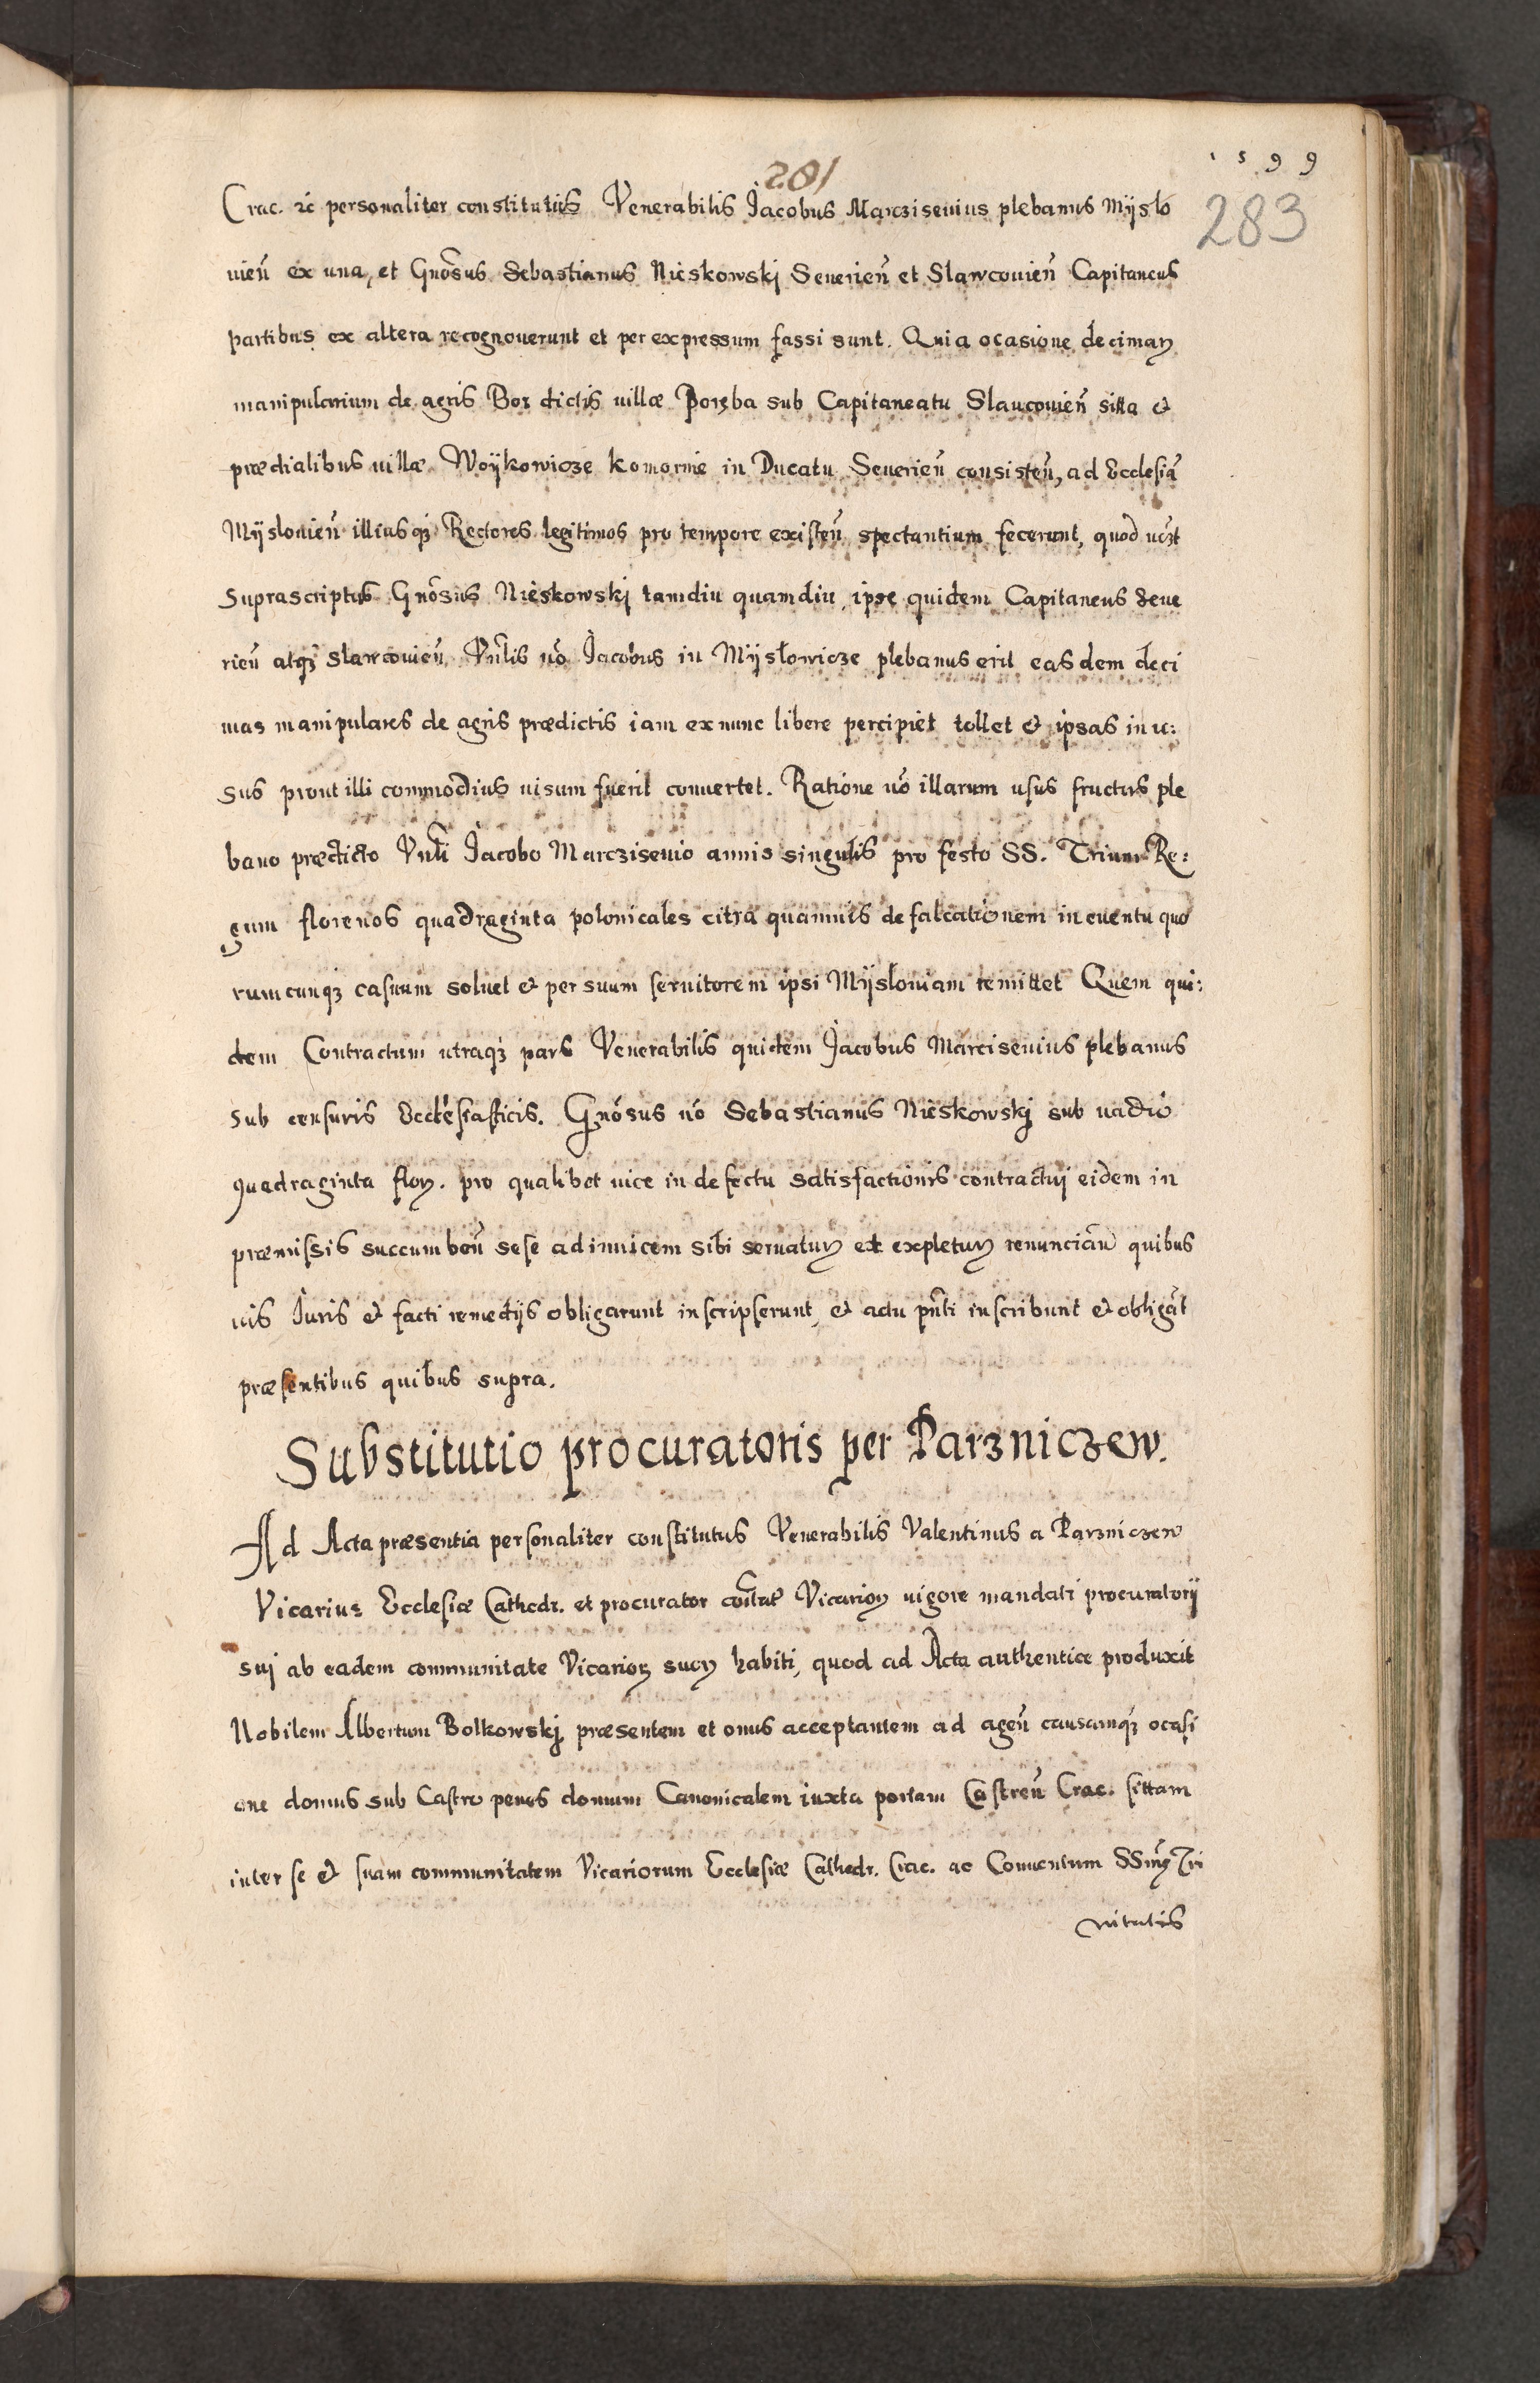 1599
281
283
Crac. ꝛc personaliter constitutus Venerabilis Jacobus Marczisevius plebanus Mÿslo
uien̄ ex una, et Gn̄osus Sebastianus Nieskowskj Seuerien̄ et Slawcouien̄ Capitaneus
partibus ex altera recognouerunt et per expressum fassi sunt. Quia ocasione decimaꝝ
manipularium de agris Bor dictis uillæ Poręba sub Capitaneatu Slaucouien̄ sitta et
prædialibus uillæ Woÿkowicze komorne in Ducatu Seuerien̄ consisten̄, ad Ecclesiā
Mÿslouien̄ illiusqꝫ Rectores legitimos pro tempore existen̄ spectantium fecerunt, quod
suprascriptus Gn̄osus Nieskowskj tamdiu quamdiu, ipse quidem Capitaneus Seue
rien̄ atqꝫ Slawcouien̄ Vn̄lis uō Jacobus in Mÿslowicze plebanus erit easdem deci
mas manipulares de agris prædictis iam ex nunc libere percipiet tollet et ipsas in u:
sus prout illi commodius uisum fuerit conuertet. Ratione uō illarum usus fructus ple
bano prædicto Vn̄li Jacobo Marczisenio annis singulis pro festo SS. Trium Re:
gum florenos quadraginta polonicales citra quamuis defalcationem in euentu quo
rumcunqꝫ casuum soluet et per suum seruitorem ipsi Mÿslouiam remittet Quem qui:
dem Contractum utraqꝫ pars Venerabilis quidem Jacobus Marcisenius plebanus
sub censuris Ecclesiasticis. Gn̄osus uō Sebastianus Nieskowskj sub uadio
quadraginta floꝝ. pro qualibet uice in defectu satisfactionis contractuj eidem in
præmissis succumben̄ sese adinuicem sibi seruatuꝝ et expletuꝝ renuncian̄ quibus
uis Juris et facti remedijs obligarunt inscripserunt, et actu pn̄ti inscribunt et obligāt
præsentibus quibus supra.
Substitutio procuratoris per Parzniczew.
Ad Acta præsentia personaliter constitutus Venerabilis Valentinus a Parzniczew
Vicarius Ecclesiæ Cathedr. et procurator cōitatis Vicarioꝝ uigore mandati procuratorij
suj ab eadem communitate Vicarioꝝ suoꝝ habiti, quod ad Acta authentice produxit
Nobilem Albertum Bolkowskj præsentem et onus acceptantem ad agen̄ causamqꝫ ocasi
one domus sub Castro penes domum Canonicalem iuxta portam Castren̄ Crac. sittam
inter se et suam communitatem Vicariorum Ecclesiæ Cathedr. Crac. ac Conuentum SSmæ Tri
nitatis